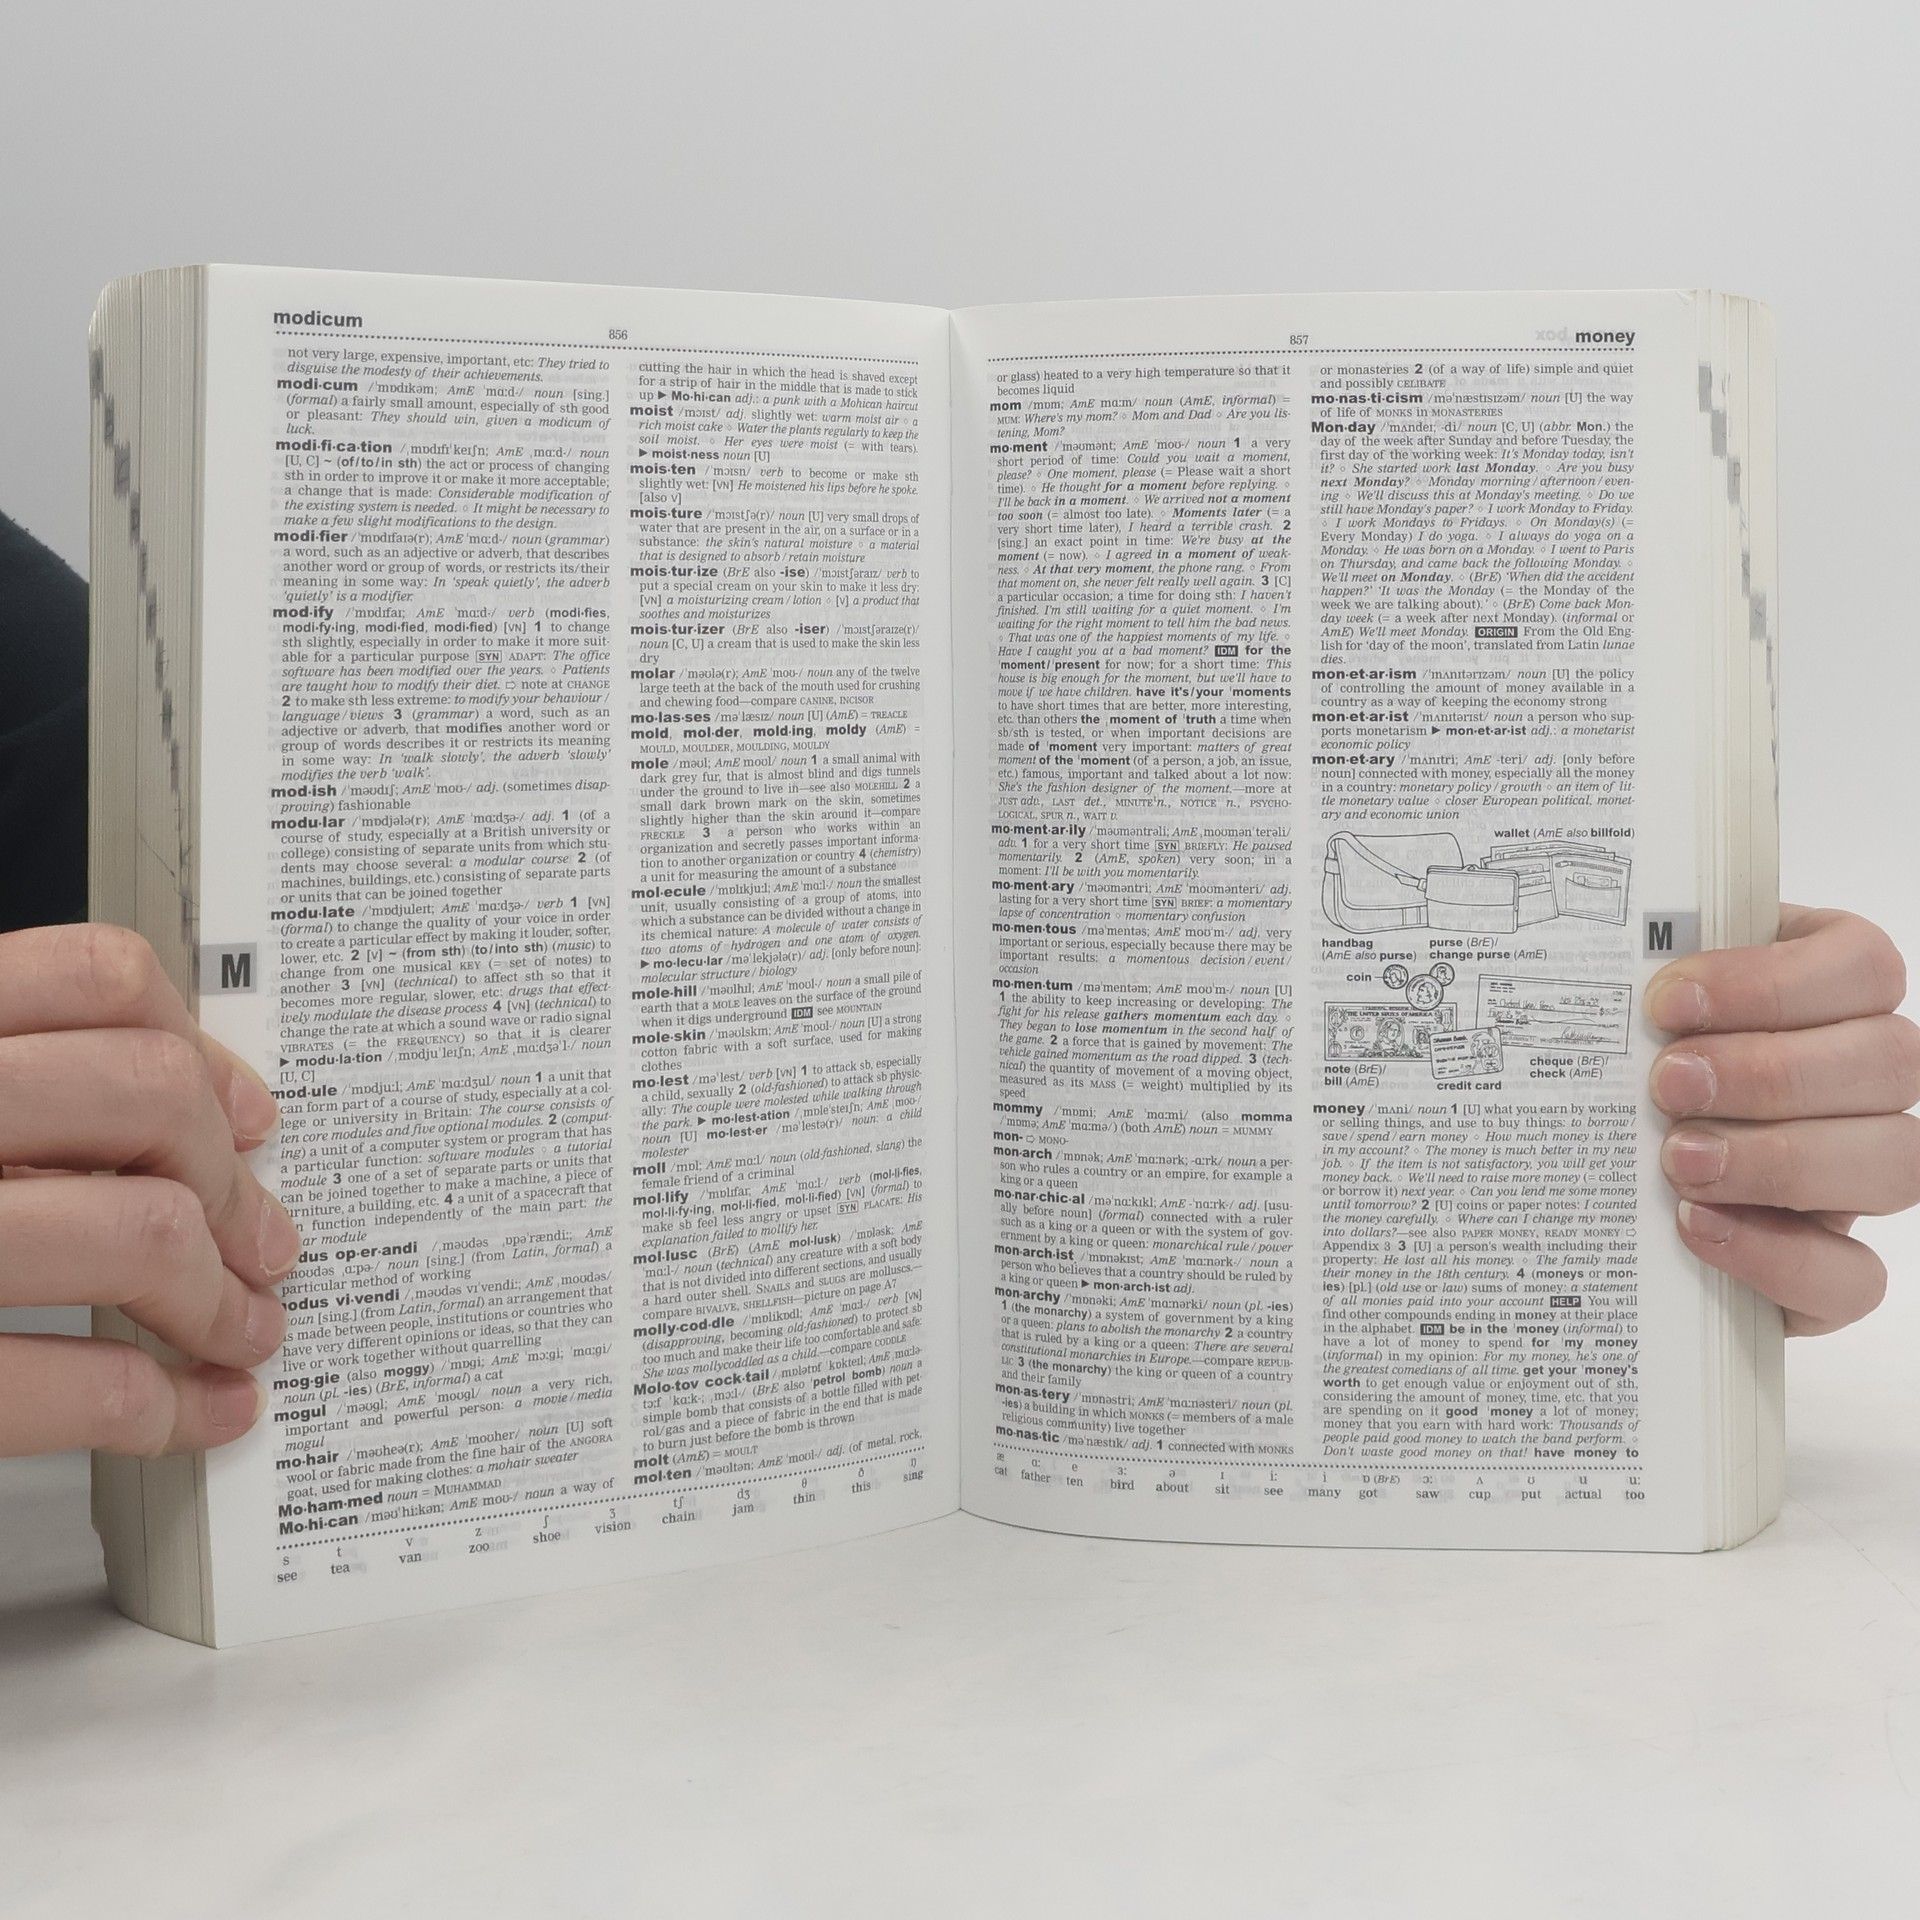 modicum
856
not very large, expensive, important, etc: They tried to
disguise the modesty of their achievements.
modi·cum /ˈmɒdɪkəm; AmE ˈmɑːd-/ noun [sing.]
(formal) a fairly small amount, especially of sth good
or pleasant: They should win, given a modicum of
luck.
modi·fi·ca·tion /ˌmɒdɪfɪˈkeɪʃn; AmE ˌmɑːd-/ noun
[U, C] ~ (of/to/in sth) the act or process of changing
sth in order to improve it or make it more acceptable;
a change that is made: Considerable modification of
the existing system is needed. ◦ It might be necessary to
make a few slight modifications to the design.
modi·fier /ˈmɒdɪfaɪə(r); AmE ˈmɑːd-/ noun (grammar)
a word, such as an adjective or adverb, that describes
another word or group of words, or restricts its/their
meaning in some way: In 'speak quietly', the adverb
'quietly' is a modifier.
mod·ify /ˈmɒdɪfaɪ; AmE ˈmɑːd-/ verb (modi·fies,
modi·fy·ing, modi·fied, modi·fied) [VN] 1 to change
sth slightly, especially in order to make it more suit-
able for a particular purpose SYN ADAPT: The office
software has been modified over the years. ◦ Patients
are taught how to modify their diet. ⇨ note at CHANGE
2 to make sth less extreme: to modify your behaviour /
language / views 3 (grammar) a word, such as an
adjective or adverb, that modifies another word or
group of words describes it or restricts its meaning
in some way: In 'walk slowly', the adverb 'slowly'
modifies the verb 'walk'.
mod·ish /ˈməʊdɪʃ; AmE ˈmoʊ-/ adj. (sometimes disap-
proving) fashionable
modu·lar /ˈmɒdjələ(r); AmE ˈmɑːdʒə-/ adj. 1 (of a
course of study, especially at a British university or
college) consisting of separate units from which stu-
dents may choose several: a modular course 2 (of
machines, buildings, etc.) consisting of separate parts
or units that can be joined together
modu·late /ˈmɒdjuleɪt; AmE ˈmɑːdʒə-/ verb 1 [VN]
(formal) to change the quality of your voice in order
to create a particular effect by making it louder, softer,
lower, etc. 2 [V] ~ (from sth) (to/into sth) (music) to
change from one musical KEY (= set of notes) to
another 3 [VN] (technical) to affect sth so that it
becomes more regular, slower, etc: drugs that effect-
ively modulate the disease process 4 [VN] (technical) to
change the rate at which a sound wave or radio signal
VIBRATES (= the FREQUENCY) so that it is clearer
▶ modu·la·tion /ˌmɒdjuˈleɪʃn; AmE ˌmɑːdʒəˈl-/ noun
[U, C]
mod·ule /ˈmɒdjuːl; AmE ˈmɑːdʒul/ noun 1 a unit that
can form part of a course of study, especially at a col-
lege or university in Britain: The course consists of
ten core modules and five optional modules. 2 (comput-
ing) a unit of a computer system or program that has
a particular function: software modules ◦ a tutorial
module 3 one of a set of separate parts or units that
can be joined together to make a machine, a piece of
urniture, a building, etc. 4 a unit of a spacecraft that
n function independently of the main part: the
ar module
dus op·er·andi /ˌməʊdəs ˌɒpəˈrændiː; AmE
moʊdəs ˌɑːpə-/ noun [sing.] (from Latin, formal) a
particular method of working
odus vi·vendi /ˌməʊdəs vɪˈvendiː; AmE ˌmoʊdəs/
oun [sing.] (from Latin, formal) an arrangement that
is made between people, institutions or countries who
have very different opinions or ideas, so that they can
live or work together without quarrelling
mog·gie (also moggy) /ˈmɒɡi; AmE ˈmɔːɡi; ˈmɑːɡi/
noun (pl. -ies) (BrE, informal) a cat
mogul /ˈməʊɡl; AmE ˈmoʊɡl/ noun a very rich,
important and powerful person: a movie / media
mogul
mo·hair /ˈməʊheə(r); AmE ˈmoʊher/ noun [U] soft
wool or fabric made from the fine hair of the ANGORA
goat, used for making clothes: a mohair sweater
Mo·ham·med noun = MUHAMMAD
Mo·hi·can /məʊˈhiːkən; AmE moʊ-/ noun a way of
cutting the hair in which the head is shaved except
for a strip of hair in the middle that is made to stick
up ▶ Mo·hi·can adj.: a punk with a Mohican haircut
moist /mɔɪst/ adj. slightly wet: warm moist air ◦ a
rich moist cake ◦ Water the plants regularly to keep the
soil moist. ◦ Her eyes were moist (= with tears).
▶ moist·ness noun [U]
mois·ten /ˈmɔɪsn/ verb to become or make sth
slightly wet: [VN] He moistened his lips before he spoke.
[also V]
mois·ture /ˈmɔɪstʃə(r)/ noun [U] very small drops of
water that are present in the air, on a surface or in a
substance: the skin's natural moisture ◦ a material
that is designed to absorb / retain moisture
mois·tur·ize (BrE also -ise) /ˈmɔɪstʃəraɪz/ verb to
put a special cream on your skin to make it less dry:
[VN] a moisturizing cream / lotion ◦ [V] a product that
soothes and moisturizes
mois·tur·izer (BrE also -iser) /ˈmɔɪstʃəraɪzə(r)/
noun [C, U] a cream that is used to make the skin less
dry
molar /ˈməʊlə(r); AmE ˈmoʊ-/ noun any of the twelve
large teeth at the back of the mouth used for crushing
and chewing food—compare CANINE, INCISOR
mo·las·ses /məˈlæsɪz/ noun [U] (AmE) = TREACLE
mold, mol·der, mold·ing, moldy (AmE) =
MOULD, MOULDER, MOULDING, MOULDY
mole /məʊl; AmE moʊl/ noun 1 a small animal with
dark grey fur, that is almost blind and digs tunnels
under the ground to live in—see also MOLEHILL 2 a
small dark brown mark on the skin, sometimes
slightly higher than the skin around it—compare
FRECKLE 3 a person who works within an
organization and secretly passes important informa-
tion to another organization or country 4 (chemistry)
a unit for measuring the amount of a substance
mol·ecule /ˈmɒlɪkjuːl; AmE ˈmɑːl-/ noun the smallest
unit, usually consisting of a group of atoms, into
which a substance can be divided without a change in
its chemical nature: A molecule of water consists of
two atoms of hydrogen and one atom of oxygen.
▶ mo·lecu·lar /məˈlekjələ(r)/ adj. [only before noun]:
molecular structure / biology
mole·hill /ˈməʊlhɪl; AmE ˈmoʊl-/ noun a small pile of
earth that a MOLE leaves on the surface of the ground
when it digs underground IDM see MOUNTAIN
mole·skin /ˈməʊlskɪn; AmE ˈmoʊl-/ noun [U] a strong
cotton fabric with a soft surface, used for making
clothes
mo·lest /məˈlest/ verb [VN] 1 to attack sb, especially
a child, sexually 2 (old-fashioned) to attack sb physic-
ally: The couple were molested while walking through
the park. ▶ mo·lest·ation /ˌmɒleˈsteɪʃn; AmE ˌmoʊ-/
noun [U] mo·lest·er /məˈlestə(r)/ noun: a child
molester
moll /mɒl; AmE mɑːl/ noun (old-fashioned, slang) the
female friend of a criminal
mol·lify /ˈmɒlɪfaɪ; AmE ˈmɑːl-/ verb (mol·li·fies,
mol·li·fy·ing, mol·li·fied, mol·li·fied) [VN] (formal) to
make sb feel less angry or upset SYN PLACATE: His
explanation failed to mollify her.
mol·lusc (BrE) (AmE mol·lusk) /ˈmɒləsk; AmE
ˈmɑːl-/ noun (technical) any creature with a soft body
that is not divided into different sections, and usually
a hard outer shell. SNAILS and SLUGS are molluscs.—
compare BIVALVE, SHELLFISH—picture on page A7
molly·cod·dle /ˈmɒlikɒdl; AmE ˈmɑːlikɑːdl/ verb [VN]
(disapproving, becoming old-fashioned) to protect sb
too much and make their life too comfortable and safe:
She was mollycoddled as a child.—compare CODDLE
Molo·tov cock·tail /ˌmɒlətɒf ˈkɒkteɪl; AmE ˌmɑːlə-
tɔːf ˈkɑːk-; ˌmɔːl-/ (BrE also ˈpetrol bomb) noun a
simple bomb that consists of a bottle filled with pet-
rol/gas and a piece of fabric in the end that is made
to burn just before the bomb is thrown
molt (AmE) = MOULT
mol·ten /ˈməʊltən; AmE ˈmoʊl-/ adj. (of metal, rock,
M
s t v z ʃ ʒ tʃ dʒ θ ð ŋ
see tea van zoo shoe vision chain jam thin this sing
857
money
or glass) heated to a very high temperature so that it
becomes liquid
mom /mɒm; AmE mɑːm/ noun (AmE, informal) =
MUM: Where's my mom? ◦ Mom and Dad ◦ Are you lis-
tening, Mom?
mo·ment /ˈməʊmənt; AmE ˈmoʊ-/ noun 1 a very
short period of time: Could you wait a moment,
please? ◦ One moment, please (= Please wait a short
time). ◦ He thought for a moment before replying. ◦
I'll be back in a moment. ◦ We arrived not a moment
too soon (= almost too late). ◦ Moments later (= a
very short time later), I heard a terrible crash. 2
[sing.] an exact point in time: We're busy at the
moment (= now). ◦ I agreed in a moment of weak-
ness. ◦ At that very moment, the phone rang. ◦ From
that moment on, she never felt really well again. 3 [C]
a particular occasion; a time for doing sth: I haven't
finished. I'm still waiting for a quiet moment. ◦ I'm
waiting for the right moment to tell him the bad news.
◦ That was one of the happiest moments of my life. ◦
Have I caught you at a bad moment? IDM for the
ˈmoment/ˈpresent for now; for a short time: This
house is big enough for the moment, but we'll have to
move if we have children. have it's/your ˈmoments
to have short times that are better, more interesting,
etc. than others the ˌmoment of ˈtruth a time when
sb/sth is tested, or when important decisions are
made of ˈmoment very important: matters of great
moment of the ˈmoment (of a person, a job, an issue,
etc.) famous, important and talked about a lot now:
She's the fashion designer of the moment.—more at
JUST adv., LAST det., MINUTE¹ n., NOTICE n., PSYCHO-
LOGICAL, SPUR n., WAIT v.
mo·ment·ar·ily /ˈməʊməntrəli; AmE ˌmoʊmənˈterəli/
adv. 1 for a very short time SYN BRIEFLY: He paused
momentarily. 2 (AmE, spoken) very soon; in a
moment: I'll be with you momentarily.
mo·ment·ary /ˈməʊməntri; AmE ˈmoʊmənteri/ adj.
lasting for a very short time SYN BRIEF: a momentary
lapse of concentration ◦ momentary confusion
mo·men·tous /məˈmentəs; AmE moʊˈm-/ adj. very
important or serious, especially because there may be
important results: a momentous decision / event /
occasion
mo·men·tum /məˈmentəm; AmE moʊˈm-/ noun [U]
1 the ability to keep increasing or developing: The
fight for his release gathers momentum each day. ◦
They began to lose momentum in the second half of
the game. 2 a force that is gained by movement: The
vehicle gained momentum as the road dipped. 3 (tech-
nical) the quantity of movement of a moving object,
measured as its MASS (= weight) multiplied by its
speed
mommy /ˈmɒmi; AmE ˈmɑːmi/ (also momma
/ˈmɒmə; AmE ˈmɑːmə/) (both AmE) noun = MUMMY
mon- ⇨ MONO-
mon·arch /ˈmɒnək; AmE ˈmɑːnərk; -ɑːrk/ noun a per-
son who rules a country or an empire, for example a
king or a queen
mo·nar·chic·al /məˈnɑːkɪkl; AmE -ˈnɑːrk-/ adj. [usu-
ally before noun] (formal) connected with a ruler
such as a king or a queen or with the system of gov-
ernment by a king or queen: monarchical rule / power
mon·arch·ist /ˈmɒnəkɪst; AmE ˈmɑːnərk-/ noun a
person who believes that a country should be ruled by
a king or queen ▶ mon·arch·ist adj.
mon·archy /ˈmɒnəki; AmE ˈmɑːnərki/ noun (pl. -ies)
1 (the monarchy) a system of government by a king
or a queen: plans to abolish the monarchy 2 a country
that is ruled by a king or a queen: There are several
constitutional monarchies in Europe.—compare REPUB-
LIC 3 (the monarchy) the king or queen of a country
and their family
mon·as·tery /ˈmɒnəstri; AmE ˈmɑːnəsteri/ noun (pl.
-ies) a building in which MONKS (= members of a male
religious community) live together
mo·nas·tic /məˈnæstɪk/ adj. 1 connected with MONKS
or monasteries 2 (of a way of life) simple and quiet
and possibly CELIBATE
mo·nas·ti·cism /məˈnæstɪsɪzəm/ noun [U] the way
of life of MONKS in MONASTERIES
Mon·day /ˈmʌndeɪ; -di/ noun [C, U] (abbr. Mon.) the
day of the week after Sunday and before Tuesday, the
first day of the working week: It's Monday today, isn't
it? ◦ She started work last Monday. ◦ Are you busy
next Monday? ◦ Monday morning / afternoon / even-
ing ◦ We'll discuss this at Monday's meeting. ◦ Do we
still have Monday's paper? ◦ I work Monday to Friday.
◦ I work Mondays to Fridays. ◦ On Monday(s) (=
Every Monday) I do yoga. ◦ I always do yoga on a
Monday. ◦ He was born on a Monday. ◦ I went to Paris
on Thursday, and came back the following Monday. ◦
We'll meet on Monday. ◦ (BrE) 'When did the accident
happen?' 'It was the Monday (= the Monday of the
week we are talking about).' ◦ (BrE) Come back Mon-
day week (= a week after next Monday). (informal or
AmE) We'll meet Monday. ORIGIN From the Old Eng-
lish for 'day of the moon', translated from Latin lunae
dies.
mon·et·ar·ism /ˈmʌnɪtərɪzəm/ noun [U] the policy
of controlling the amount of money available in a
country as a way of keeping the economy strong
mon·et·ar·ist /ˈmʌnɪtərɪst/ noun a person who sup-
ports monetarism ▶ mon·et·ar·ist adj.: a monetarist
economic policy
mon·et·ary /ˈmʌnɪtri; AmE -teri/ adj. [only before
noun] connected with money, especially all the money
in a country: monetary policy / growth ◦ an item of lit-
tle monetary value ◦ closer European political, monet-
ary and economic union
wallet (AmE also billfold)
handbag
(AmE also purse)
purse (BrE)/
change purse (AmE)
coin
THE UNITED STATES OF AMERICA
note (BrE)/
bill (AmE)
credit card
cheque (BrE)/
check (AmE)
money /ˈmʌni/ noun 1 [U] what you earn by working
or selling things, and use to buy things: to borrow /
save / spend / earn money ◦ How much money is there
in my account? ◦ The money is much better in my new
job. ◦ If the item is not satisfactory, you will get your
money back. ◦ We'll need to raise more money (= collect
or borrow it) next year. ◦ Can you lend me some money
until tomorrow? 2 [U] coins or paper notes: I counted
the money carefully. ◦ Where can I change my money
into dollars?—see also PAPER MONEY, READY MONEY ⇨
Appendix 3 3 [U] a person's wealth including their
property: He lost all his money. ◦ The family made
their money in the 18th century. 4 (moneys or mon-
ies) [pl.] (old use or law) sums of money: a statement
of all monies paid into your account HELP You will
find other compounds ending in money at their place
in the alphabet. IDM be in the ˈmoney (informal) to
have a lot of money to spend for ˈmy money
(informal) in my opinion: For my money, he's one of
the greatest comedians of all time. get your ˈmoney's
worth to get enough value or enjoyment out of sth,
considering the amount of money, time, etc. that you
are spending on it good ˈmoney a lot of money;
money that you earn with hard work: Thousands of
people paid good money to watch the band perform. ◦
Don't waste good money on that! have money to
M
æ ɑː e ɜː ə ɪ iː i ɒ (BrE) ɔː ʌ ʊ u uː
cat father ten bird about sit see many got saw cup put actual too